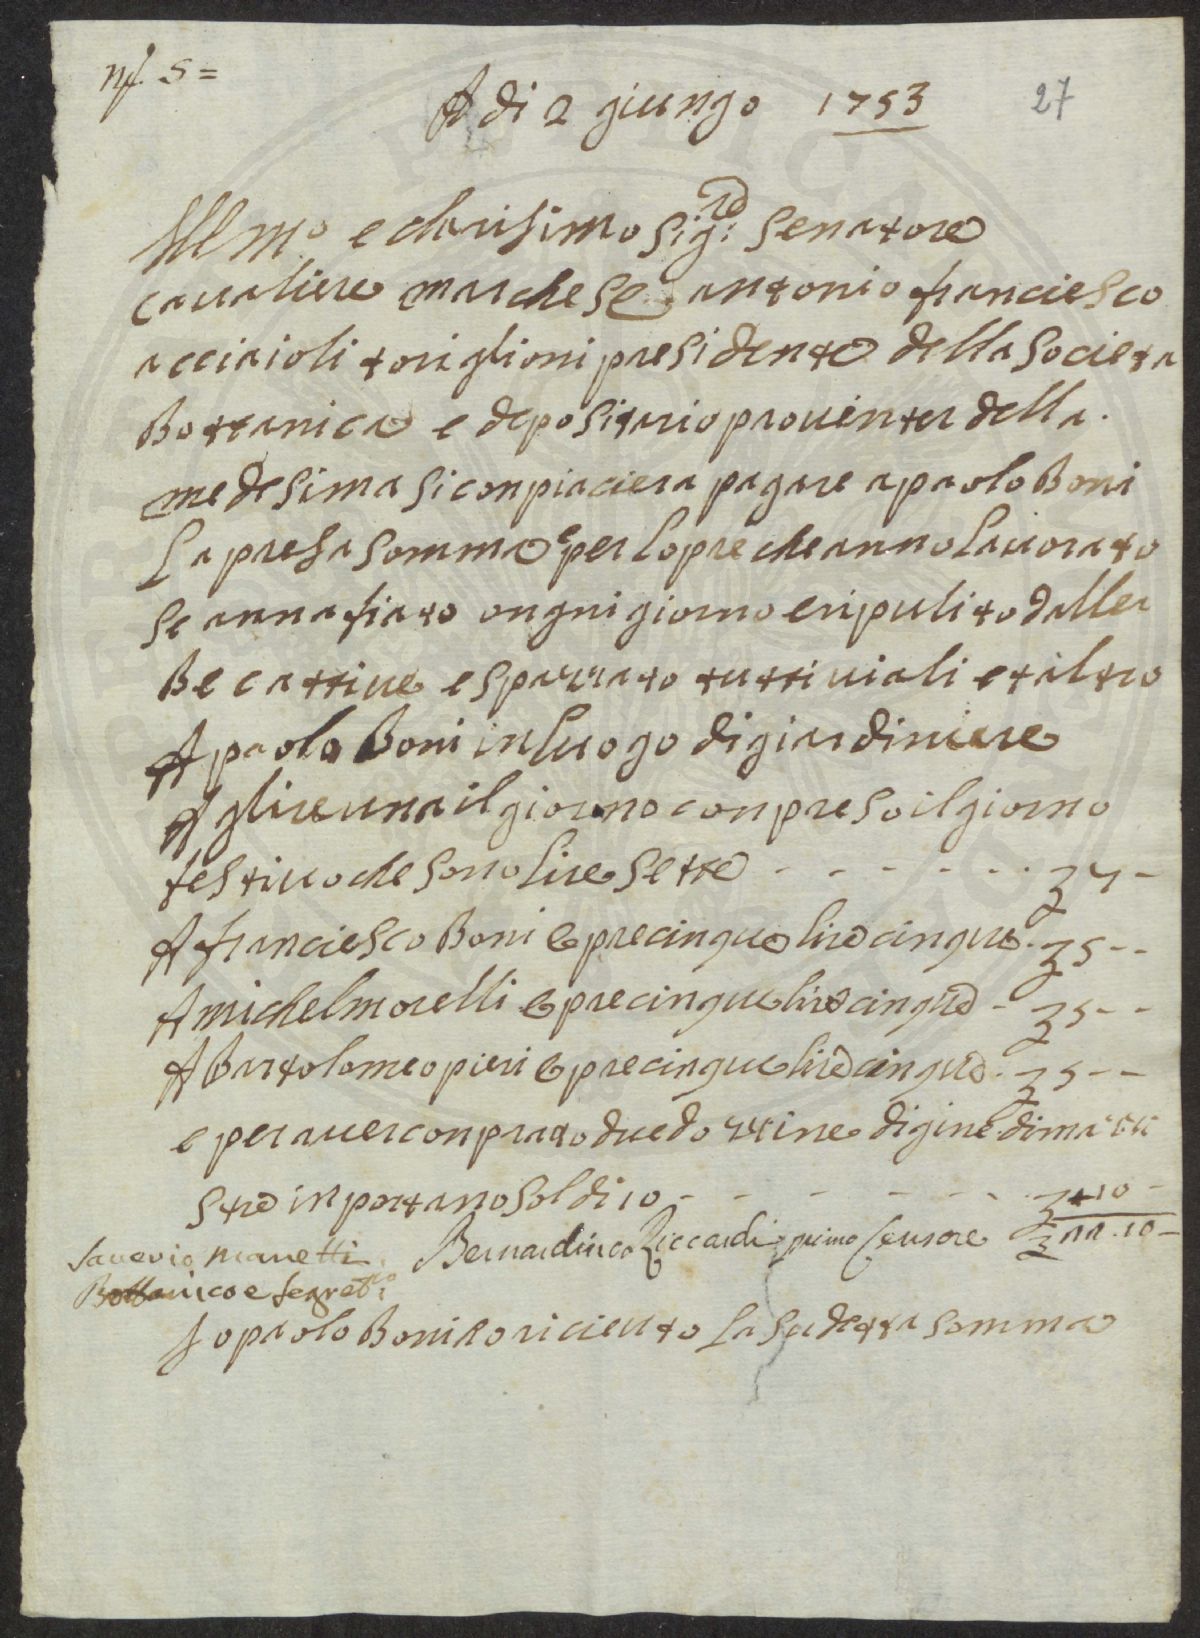 nf. 5 =
A di 2 giungo 1753
27
Ill.mo e clarisimo Sig:re Senatore
caualiere marchese antonio franciesco
acciaioli toriglioni presidente della societa
Bottanica e depositario prouente della.
medesima si conpiaciera pagare a paolo Boni
La presa somma e per lopre che anno lauorato
se annafiato ongni giorno e ripulito dalle
Be cattiue e spazzato tutti uiali et altro
A paolo Boni in luogo di giardiniere
A lire una il giorno conpreso il giorno
festiuo che sono lire sette - - - - - - 7 -
A franciesco Boni opre cinque lire cinque - 5 - -
A michel morelli opre cinque lire cinque - 5 - -
A Bartolomeo pieri opre cinque lire cinque - 5 - -
e per auer conprato due dozzine di
stre inportano soldi 10 - - - - - - 10 -
22.10 -
Sauerio Manetti Bernardino Riccardi primo Censore
Bottanico e Segret.rio
Jo paolo Boni o riceuto La su detta somma